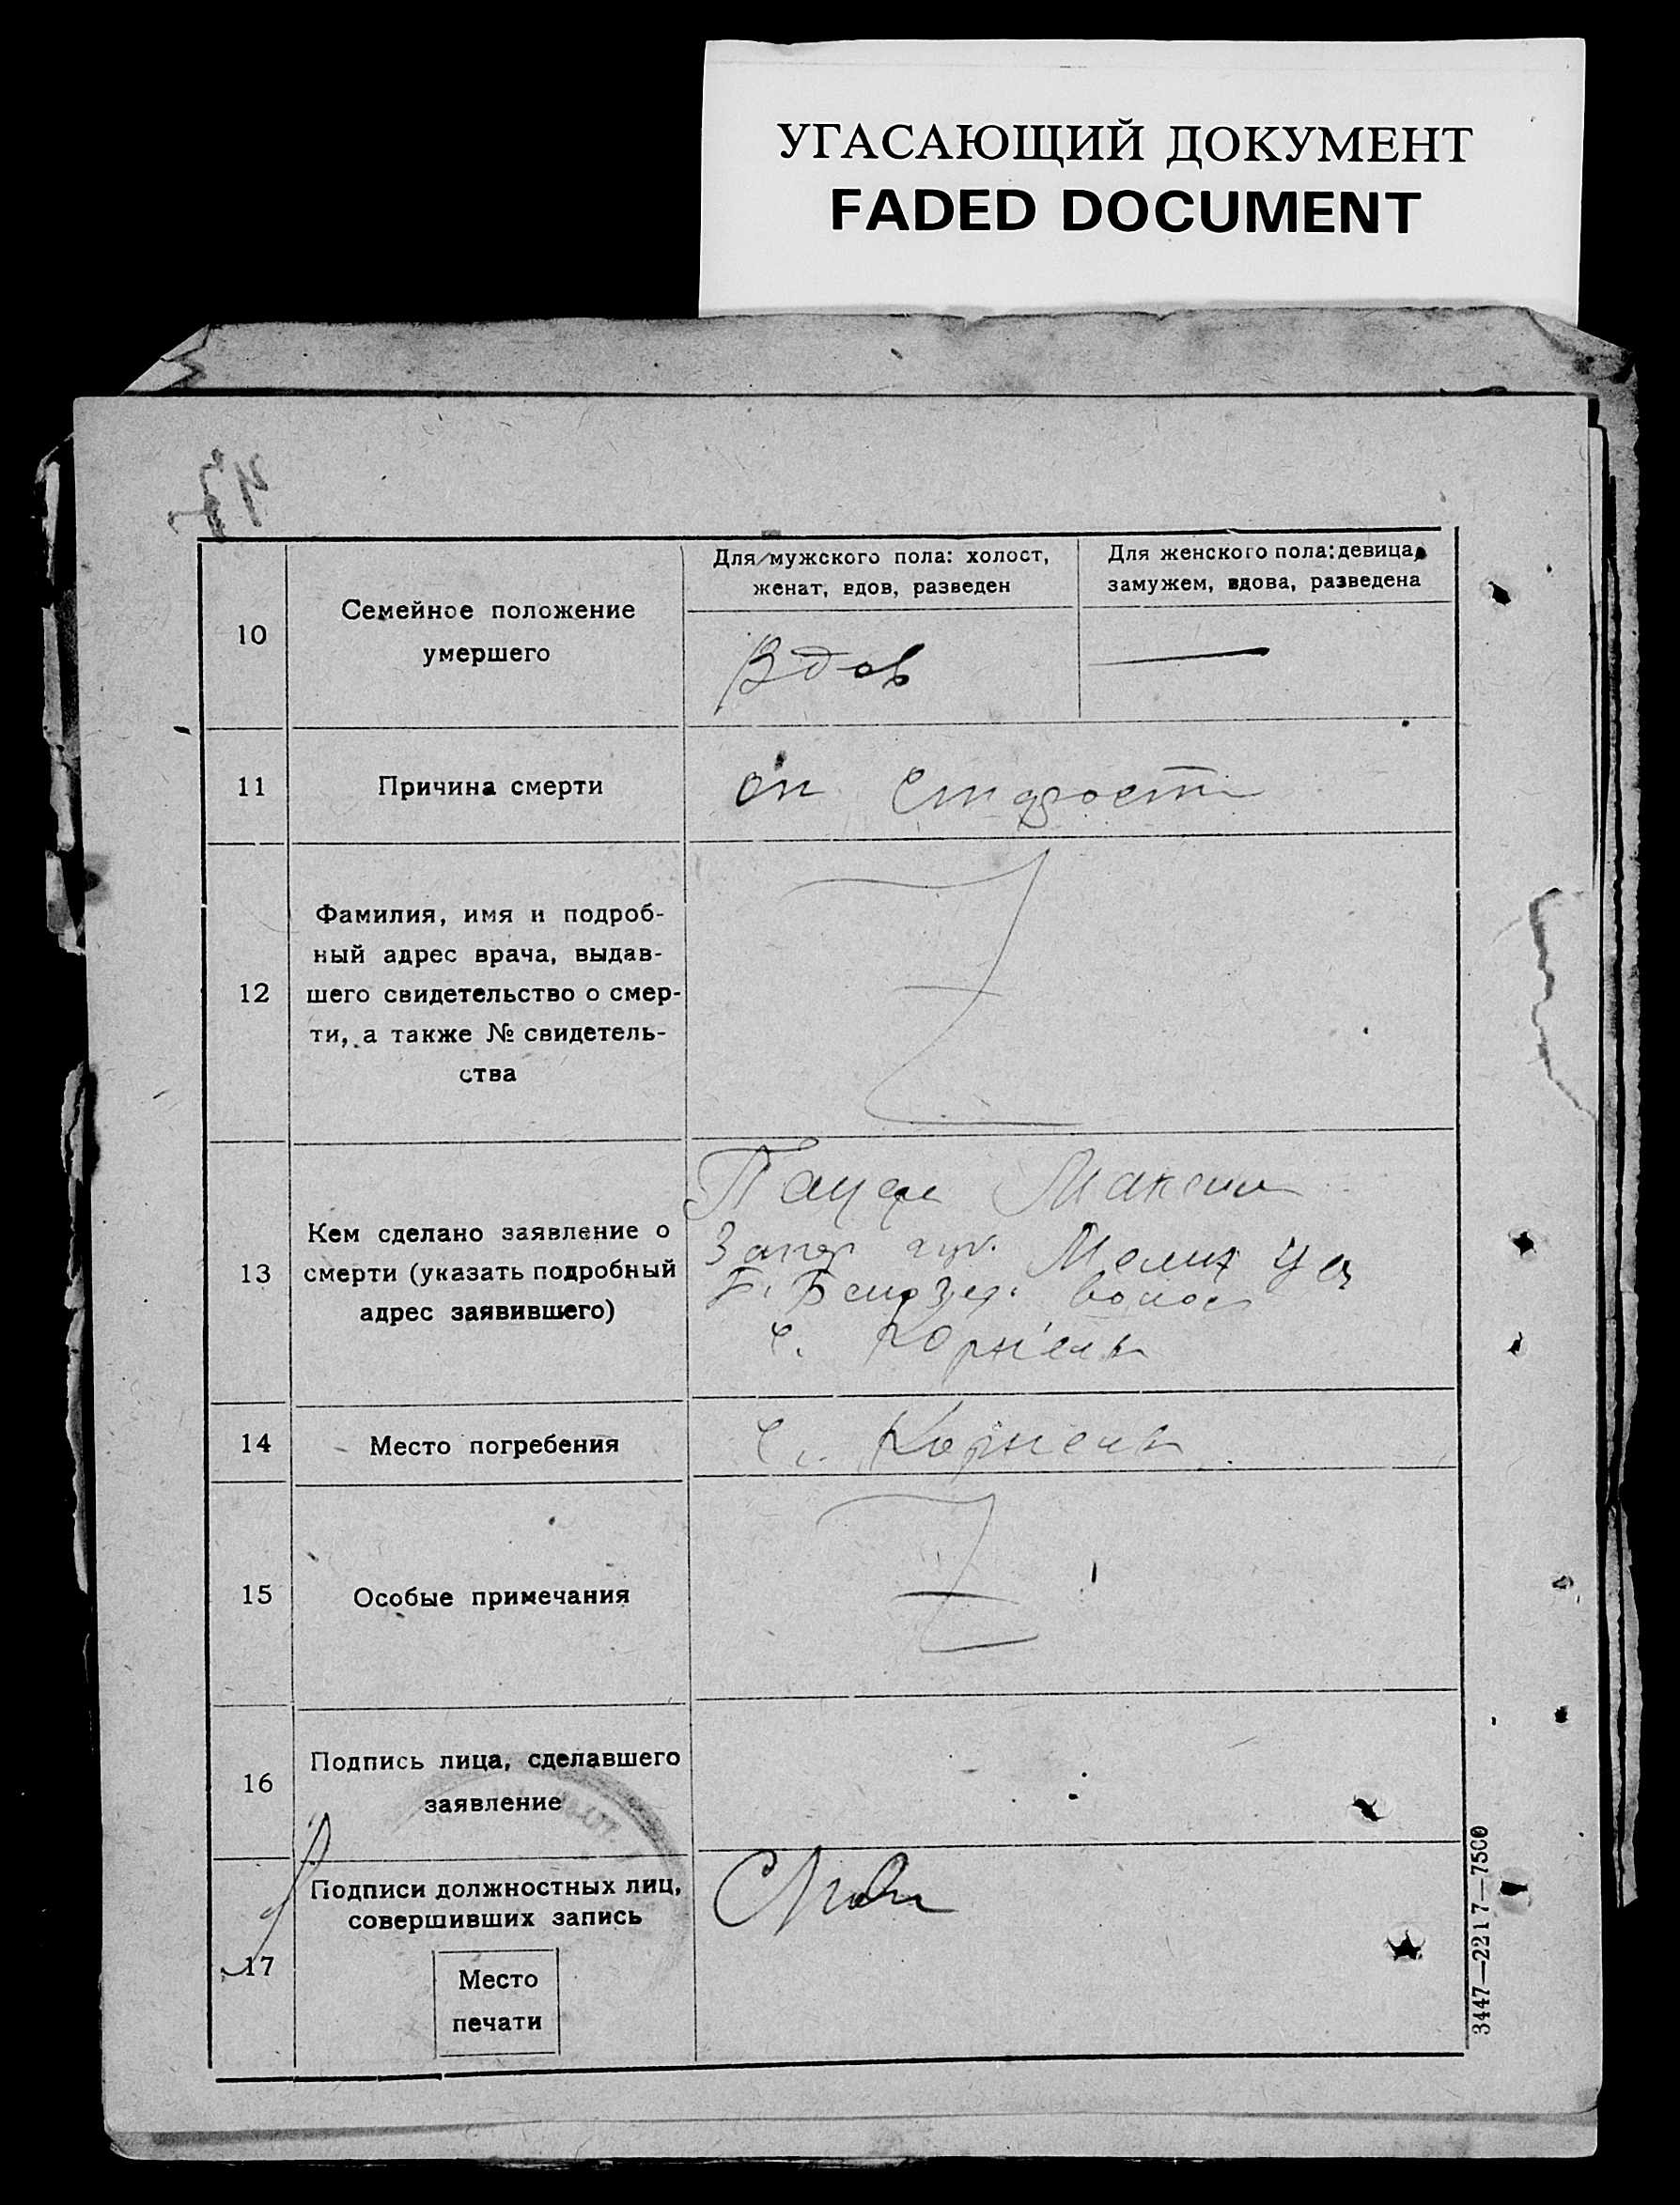 УГАСАЮЩИЙ ДОКУМЕНТ
FADED DOCUMENT
10
Семейное положение
умершего
Для мужского пола: холост,
женат, вдов, разведен
Для женского пола: девица,
замужем, вдова, разведена
Вдов
11
Причина смерти
от старости
12
Фамилия, имя и подроб-
ный адрес врача, выдав-
шего свидетельство о смер-
ти, а также № свидетель-
ства
13
Кем сделано заявление о
смерти (указать подробный
адрес заявившего)
Максим
Запор губ. Мелит
волос
с.
14
Место погребения
с.
15
Особые примечания
16
Подпись лица, сделавшего
заявление
17
Подписи должностных лиц,
совершивших запись
Место
печати
3447—2217—7500